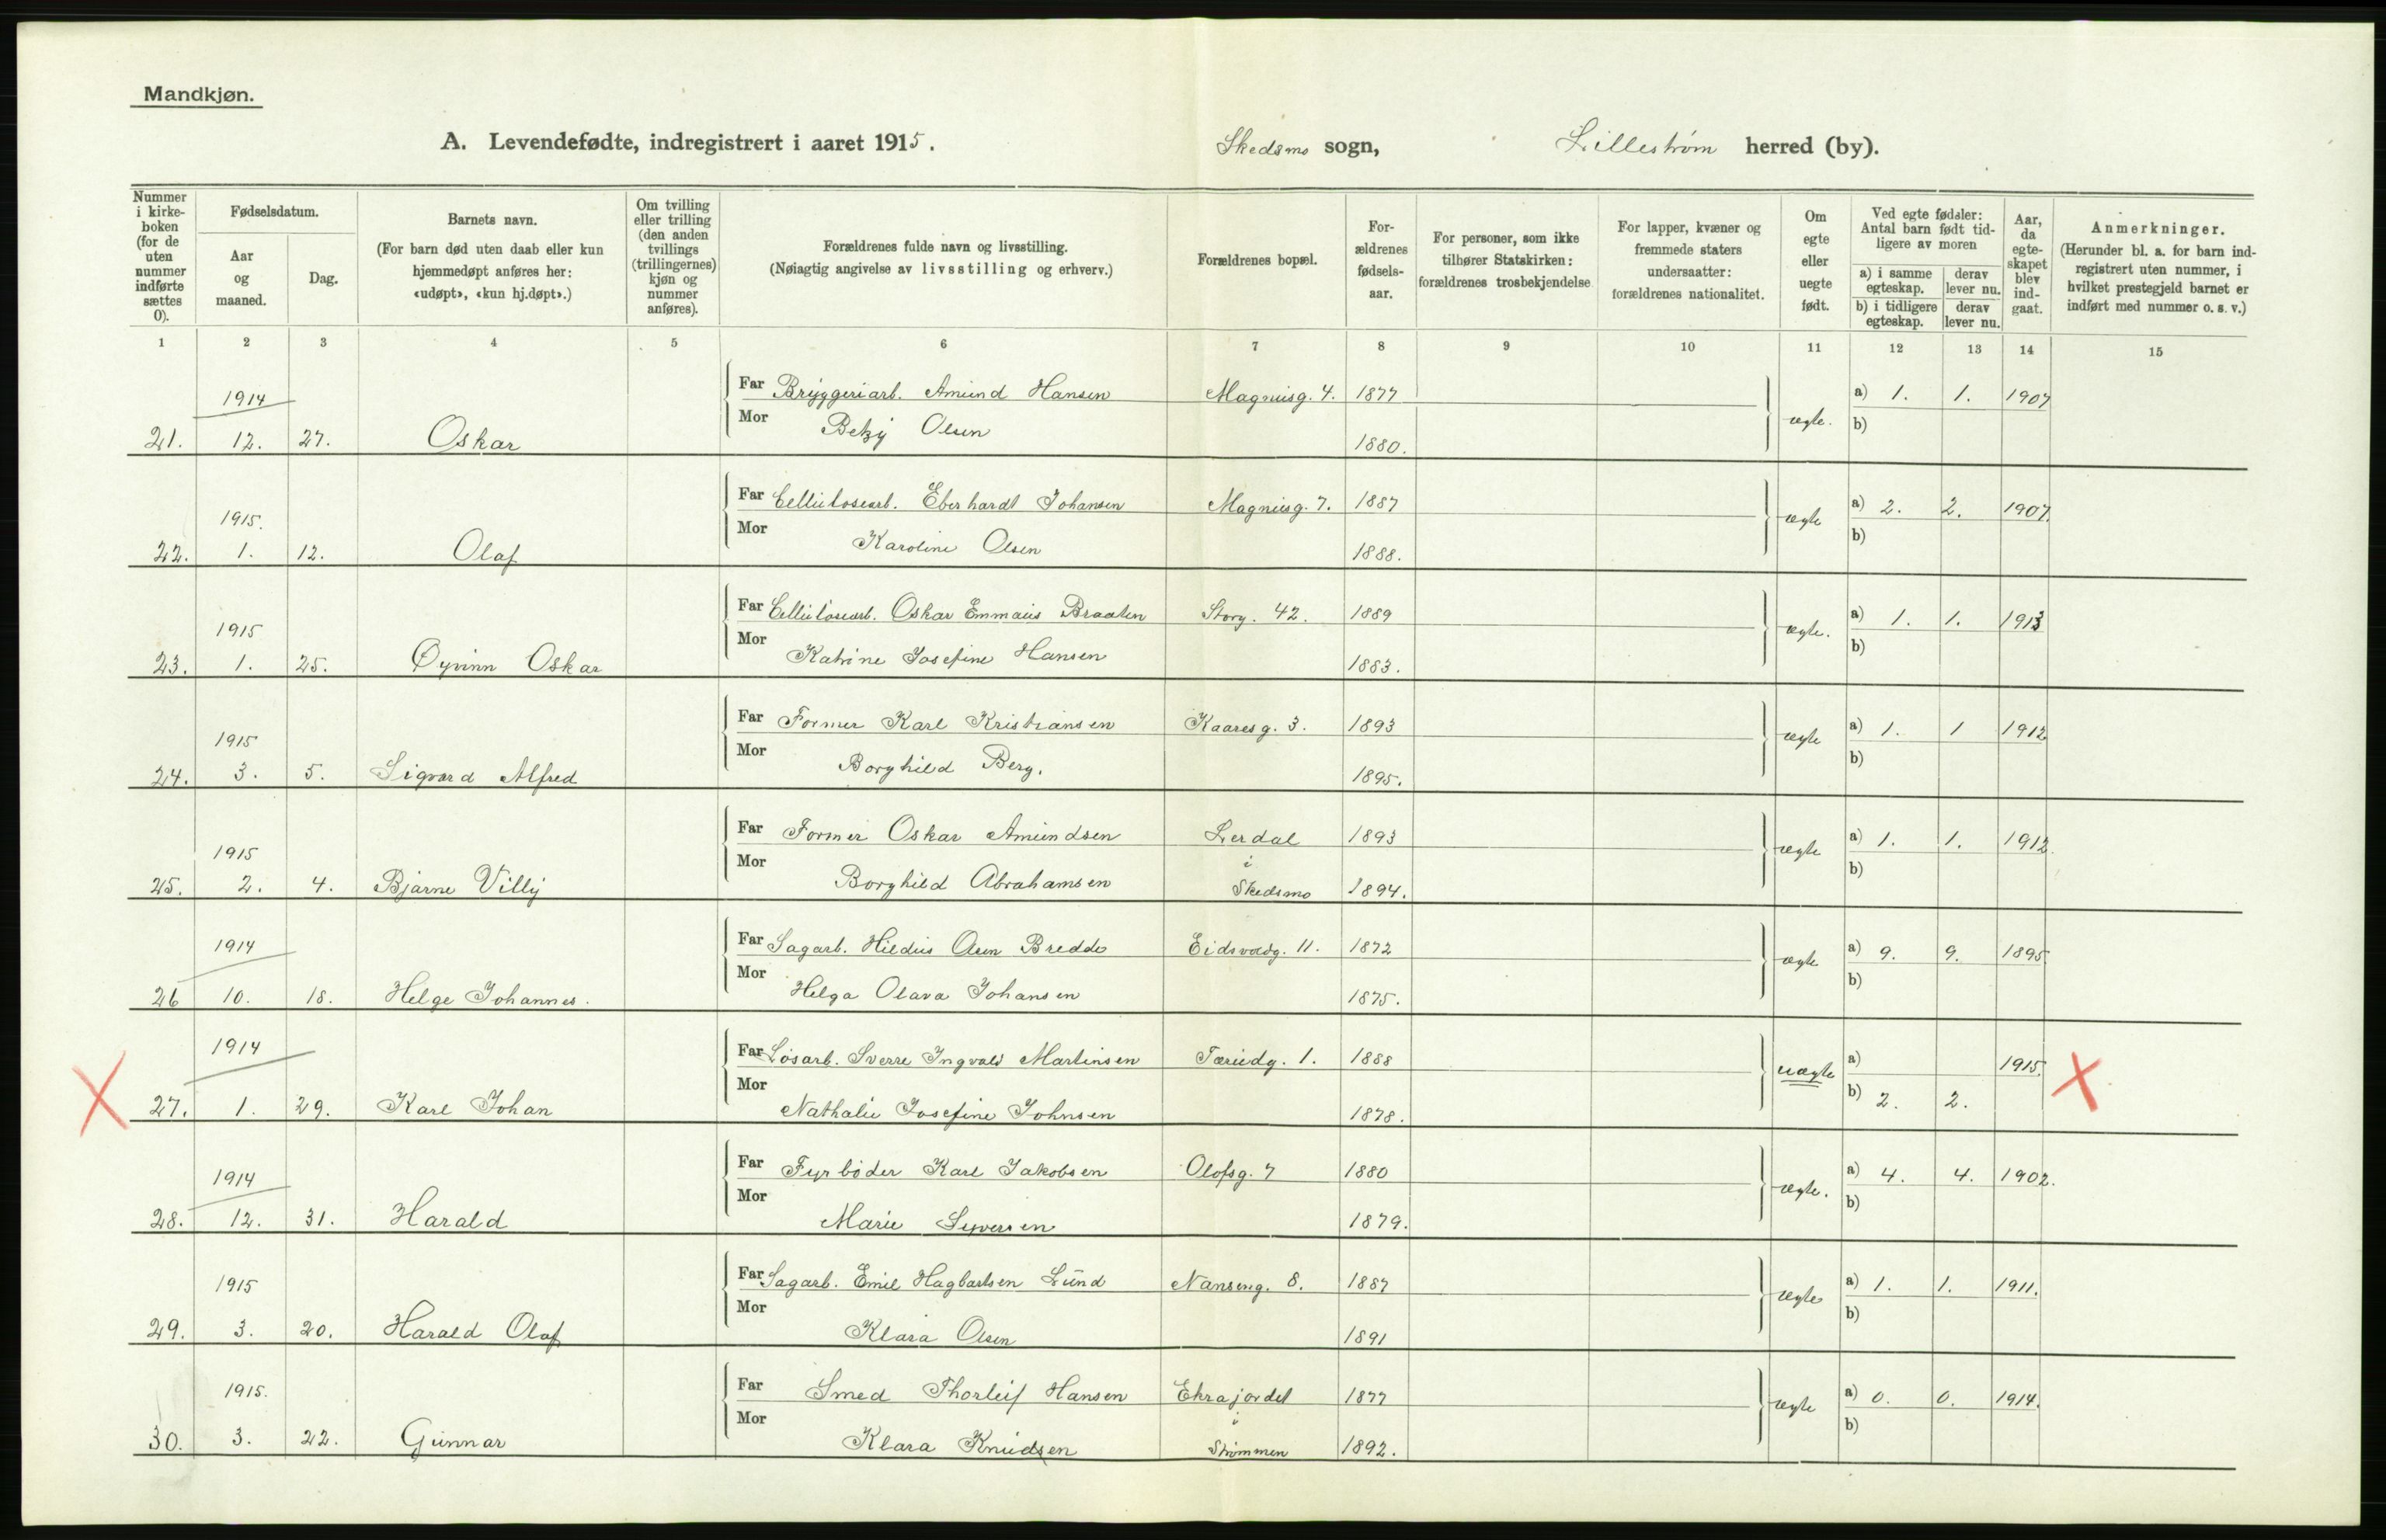 Mandkjøn.
A. Levendefødte, indregistrert i aaret 1915. Skedsmo sogn, Lillestrøm herred (by).
Nummer i kirke-boken (for de uten nummer indførte sættes 0).
Fødselsdatum.
Aar og maaned.
Dag.
Barnets navn.
(For barn død uten daab eller kun hjemmedøpt anføres her: «udøpt», «kun hj.døpt».)
Om tvilling eller trilling (den anden tvillings (trillingernes) kjøn og nummer anføres).
Forældrenes fulde navn og livsstilling.
(Nøiagtig angivelse av livsstilling og erhverv.)
Forældrenes bopæl.
For-ældrenes fødsels-aar.
For personer, som ikke tilhører Statskirken: forældrenes trosbekjendelse
For lapper, kvæner og fremmede staters undersaatter: forældrenes nationalitet.
Om egte eller uegte født.
Ved egte fødsler: Antal barn født tid-ligere av moren
a) i samme egteskap.
derav lever nu.
b) i tidligere egteskap.
derav lever nu.
Aar, da egte-skapet blev ind-gaat.
Anmerkninger.
(Herunder bl. a. for barn ind-registrert uten nummer, i hvilket prestegjeld barnet er indført med nummer o. s. v.)
1 2 3 4 5 6 7 8 9 10 11 12 13 14 15
1914 Far Bryggeriarb. Amund Hansen Magnusg. 4. 1877 a) 1. 1. 1907
21. 12. 27. Oskar Mor Betzy Olsen 1880. ægte. b)
1915. Far Cellulosearb. Eberhardt Johansen Magnusg. 7. 1887 a) 2. 2. 1907.
22. 1. 12. Olaf Mor Karoline Olsen 1888. ægte b)
1915 Far Cellulosearb. Oskar Emmaus Braaten Storg. 42. 1889 a) 1. 1. 1913
23. 1. 25. Øyvinn Oskar Mor Katrine Josefine Hansen 1883. ægte. b)
1915 Far Former Karl Kristiansen Kaaresg. 3. 1893 a) 1. 1 1912
24. 3. 5. Sigvard Alfred Mor Borghild Berg. 1895. ægte b)
1915 Far Former Oskar Amundsen Lerdal 1893 a) 1. 1. 1912.
25. 2. 4. Bjarne Villy Mor Borghild Abrahamsen i Skedsmo 1894. ægte b)
1914 Far Sagarb. Hildus Olsen Bredde Eidsvoldg. 11. 1872 a) 9. 9. 1895.
26 10. 18. Helge Johannes. Mor Helga Olava Johansen 1875. ægte b)
1914 Far Løsarb. Sverre Ingvald Martinsen 1. 1888 a) 1915.
27. 1. 29. Karl Johan Mor Nathalie Josefine Johnsen 1878. uægte b) 2. 2.
1914 Far Fyrbøder Karl Jakobsen Olofsg. 7 1880 a) 4. 4. 1902.
28. 12. 31. Harald Mor Marie Syversen 1879. ægte. b)
1915 Far Sagarb. Emil Hagbartsen Lund Nanseng. 8. 1887 a) 1. 1. 1911.
29. 3. 20. Harald Olaf Mor Klara Olsen 1891 ægte b)
1915. Far Smed Thorleif Hansen Ekrajordet 1877 a) 0. 0. 1914.
30. 3. 22. Gunnar Mor Klara Knudsen i Strømmen 1892. ægte b)